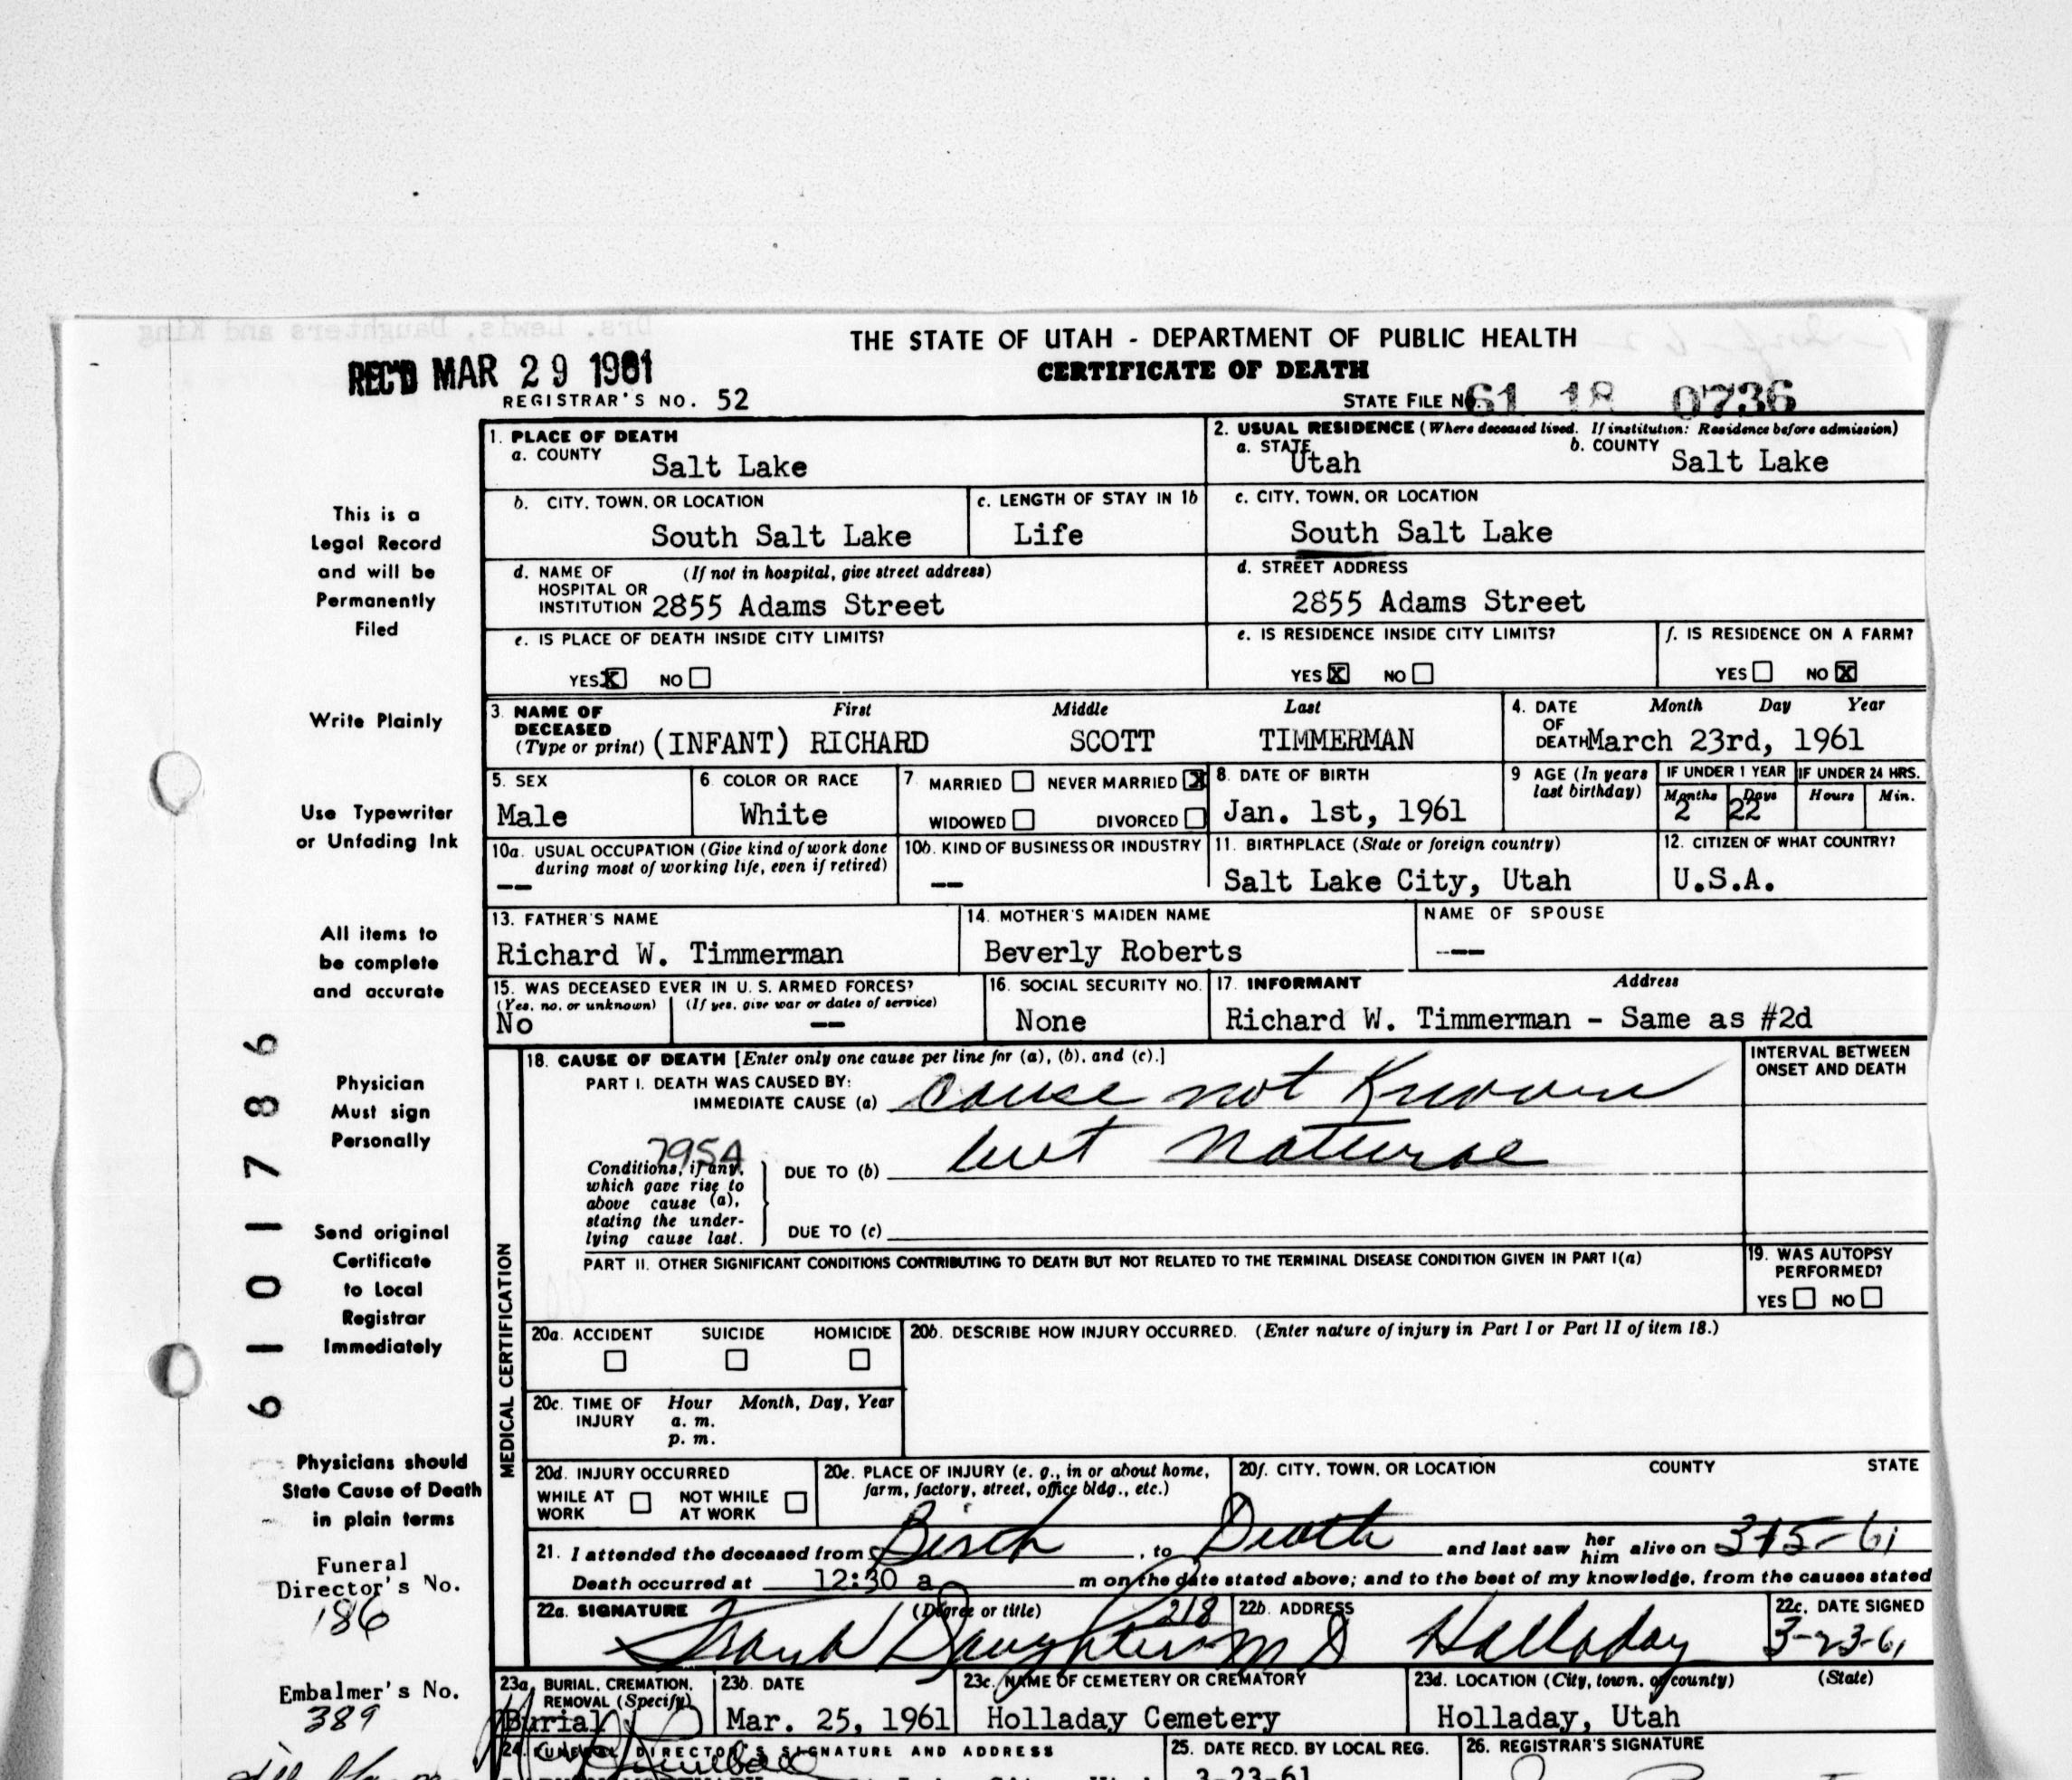 THE STATE OF UTAH - DEPARTMENT OF PUBLIC HEALTH
REC'D MAR 29 1961
CERTIFICATE OF DEATH
REGISTRAR'S NO. 52
STATE FILE NO. 61 18 0736
1. PLACE OF DEATH
a. COUNTY Salt Lake
2. USUAL RESIDENCE (Where deceased lived. If institution: Residence before admission)
a. STATE Utah b. COUNTY Salt Lake
b. CITY, TOWN, OR LOCATION South Salt Lake
c. LENGTH OF STAY IN 1b Life
c. CITY, TOWN, OR LOCATION South Salt Lake
d. NAME OF HOSPITAL OR INSTITUTION (If not in hospital, give street address) 2855 Adams Street
d. STREET ADDRESS 2855 Adams Street
e. IS PLACE OF DEATH INSIDE CITY LIMITS?
YES X NO
e. IS RESIDENCE INSIDE CITY LIMITS?
YES X NO
f. IS RESIDENCE ON A FARM?
YES NO X
3. NAME OF DECEASED (Type or print) First Middle Last
(INFANT) RICHARD SCOTT TIMMERMAN
4. DATE OF DEATH Month Day Year
March 23rd, 1961
5. SEX Male
6. COLOR OR RACE White
7 MARRIED NEVER MARRIED X
WIDOWED DIVORCED
8. DATE OF BIRTH Jan. 1st, 1961
9 AGE (In years last birthday)
IF UNDER 1 YEAR Months 2 Days 22
IF UNDER 24 HRS. Hours Min.
10a. USUAL OCCUPATION (Give kind of work done during most of working life, even if retired) --
10b. KIND OF BUSINESS OR INDUSTRY --
11. BIRTHPLACE (State or foreign country) Salt Lake City, Utah
12. CITIZEN OF WHAT COUNTRY? U.S.A.
13. FATHER'S NAME Richard W. Timmerman
14. MOTHER'S MAIDEN NAME Beverly Roberts
NAME OF SPOUSE ---
15. WAS DECEASED EVER IN U. S. ARMED FORCES?
(Yes, no, or unknown) (If yes, give war or dates of service)
No --
16. SOCIAL SECURITY NO. None
17. INFORMANT Address
Richard W. Timmerman - Same as #2d
18. CAUSE OF DEATH [Enter only one cause per line for (a), (b), and (c).]
INTERVAL BETWEEN ONSET AND DEATH
PART I. DEATH WAS CAUSED BY:
IMMEDIATE CAUSE (a) cause not Known
795A
Conditions, if any, which gave rise to above cause (a), stating the underlying cause last.
DUE TO (b) but natural
DUE TO (c)
PART II. OTHER SIGNIFICANT CONDITIONS CONTRIBUTING TO DEATH BUT NOT RELATED TO THE TERMINAL DISEASE CONDITION GIVEN IN PART I(a)
19. WAS AUTOPSY PERFORMED?
YES NO
MEDICAL CERTIFICATION
20a. ACCIDENT SUICIDE HOMICIDE
20b. DESCRIBE HOW INJURY OCCURRED. (Enter nature of injury in Part I or Part II of item 18.)
20c. TIME OF INJURY Hour Month, Day, Year
a. m.
p. m.
20d. INJURY OCCURRED
WHILE AT WORK NOT WHILE AT WORK
20e. PLACE OF INJURY (e. g., in or about home, farm, factory, street, office bldg., etc.)
20f. CITY, TOWN, OR LOCATION COUNTY STATE
21. I attended the deceased from Birth, to Death and last saw her him alive on 3-15-61
Death occurred at 12:30 a m on the date stated above; and to the best of my knowledge, from the causes stated
22a. SIGNATURE (Degree or title) 218
Frank Daughters M D
22b. ADDRESS Holladay
22c. DATE SIGNED 3-23-61
23a. BURIAL, CREMATION, REMOVAL (Specify) Burial
23b. DATE Mar. 25, 1961
23c. NAME OF CEMETERY OR CREMATORY Holladay Cemetery
23d. LOCATION (City, town, or county) (State) Holladay, Utah
24. FUNERAL DIRECTOR'S SIGNATURE AND ADDRESS
25. DATE RECD. BY LOCAL REG. 3-23-61
26. REGISTRAR'S SIGNATURE
This is a
Legal Record
and will be
Permanently
Filed
Write Plainly
Use Typewriter
or Unfading Ink
All items to
be complete
and accurate
Physician
Must sign
Personally
Send original
Certificate
to Local
Registrar
Immediately
Physicians should
State Cause of Death
in plain terms
Funeral
Director's No.
186
Embalmer's No.
389
6101786
Drs. Lewis, Daughters and King